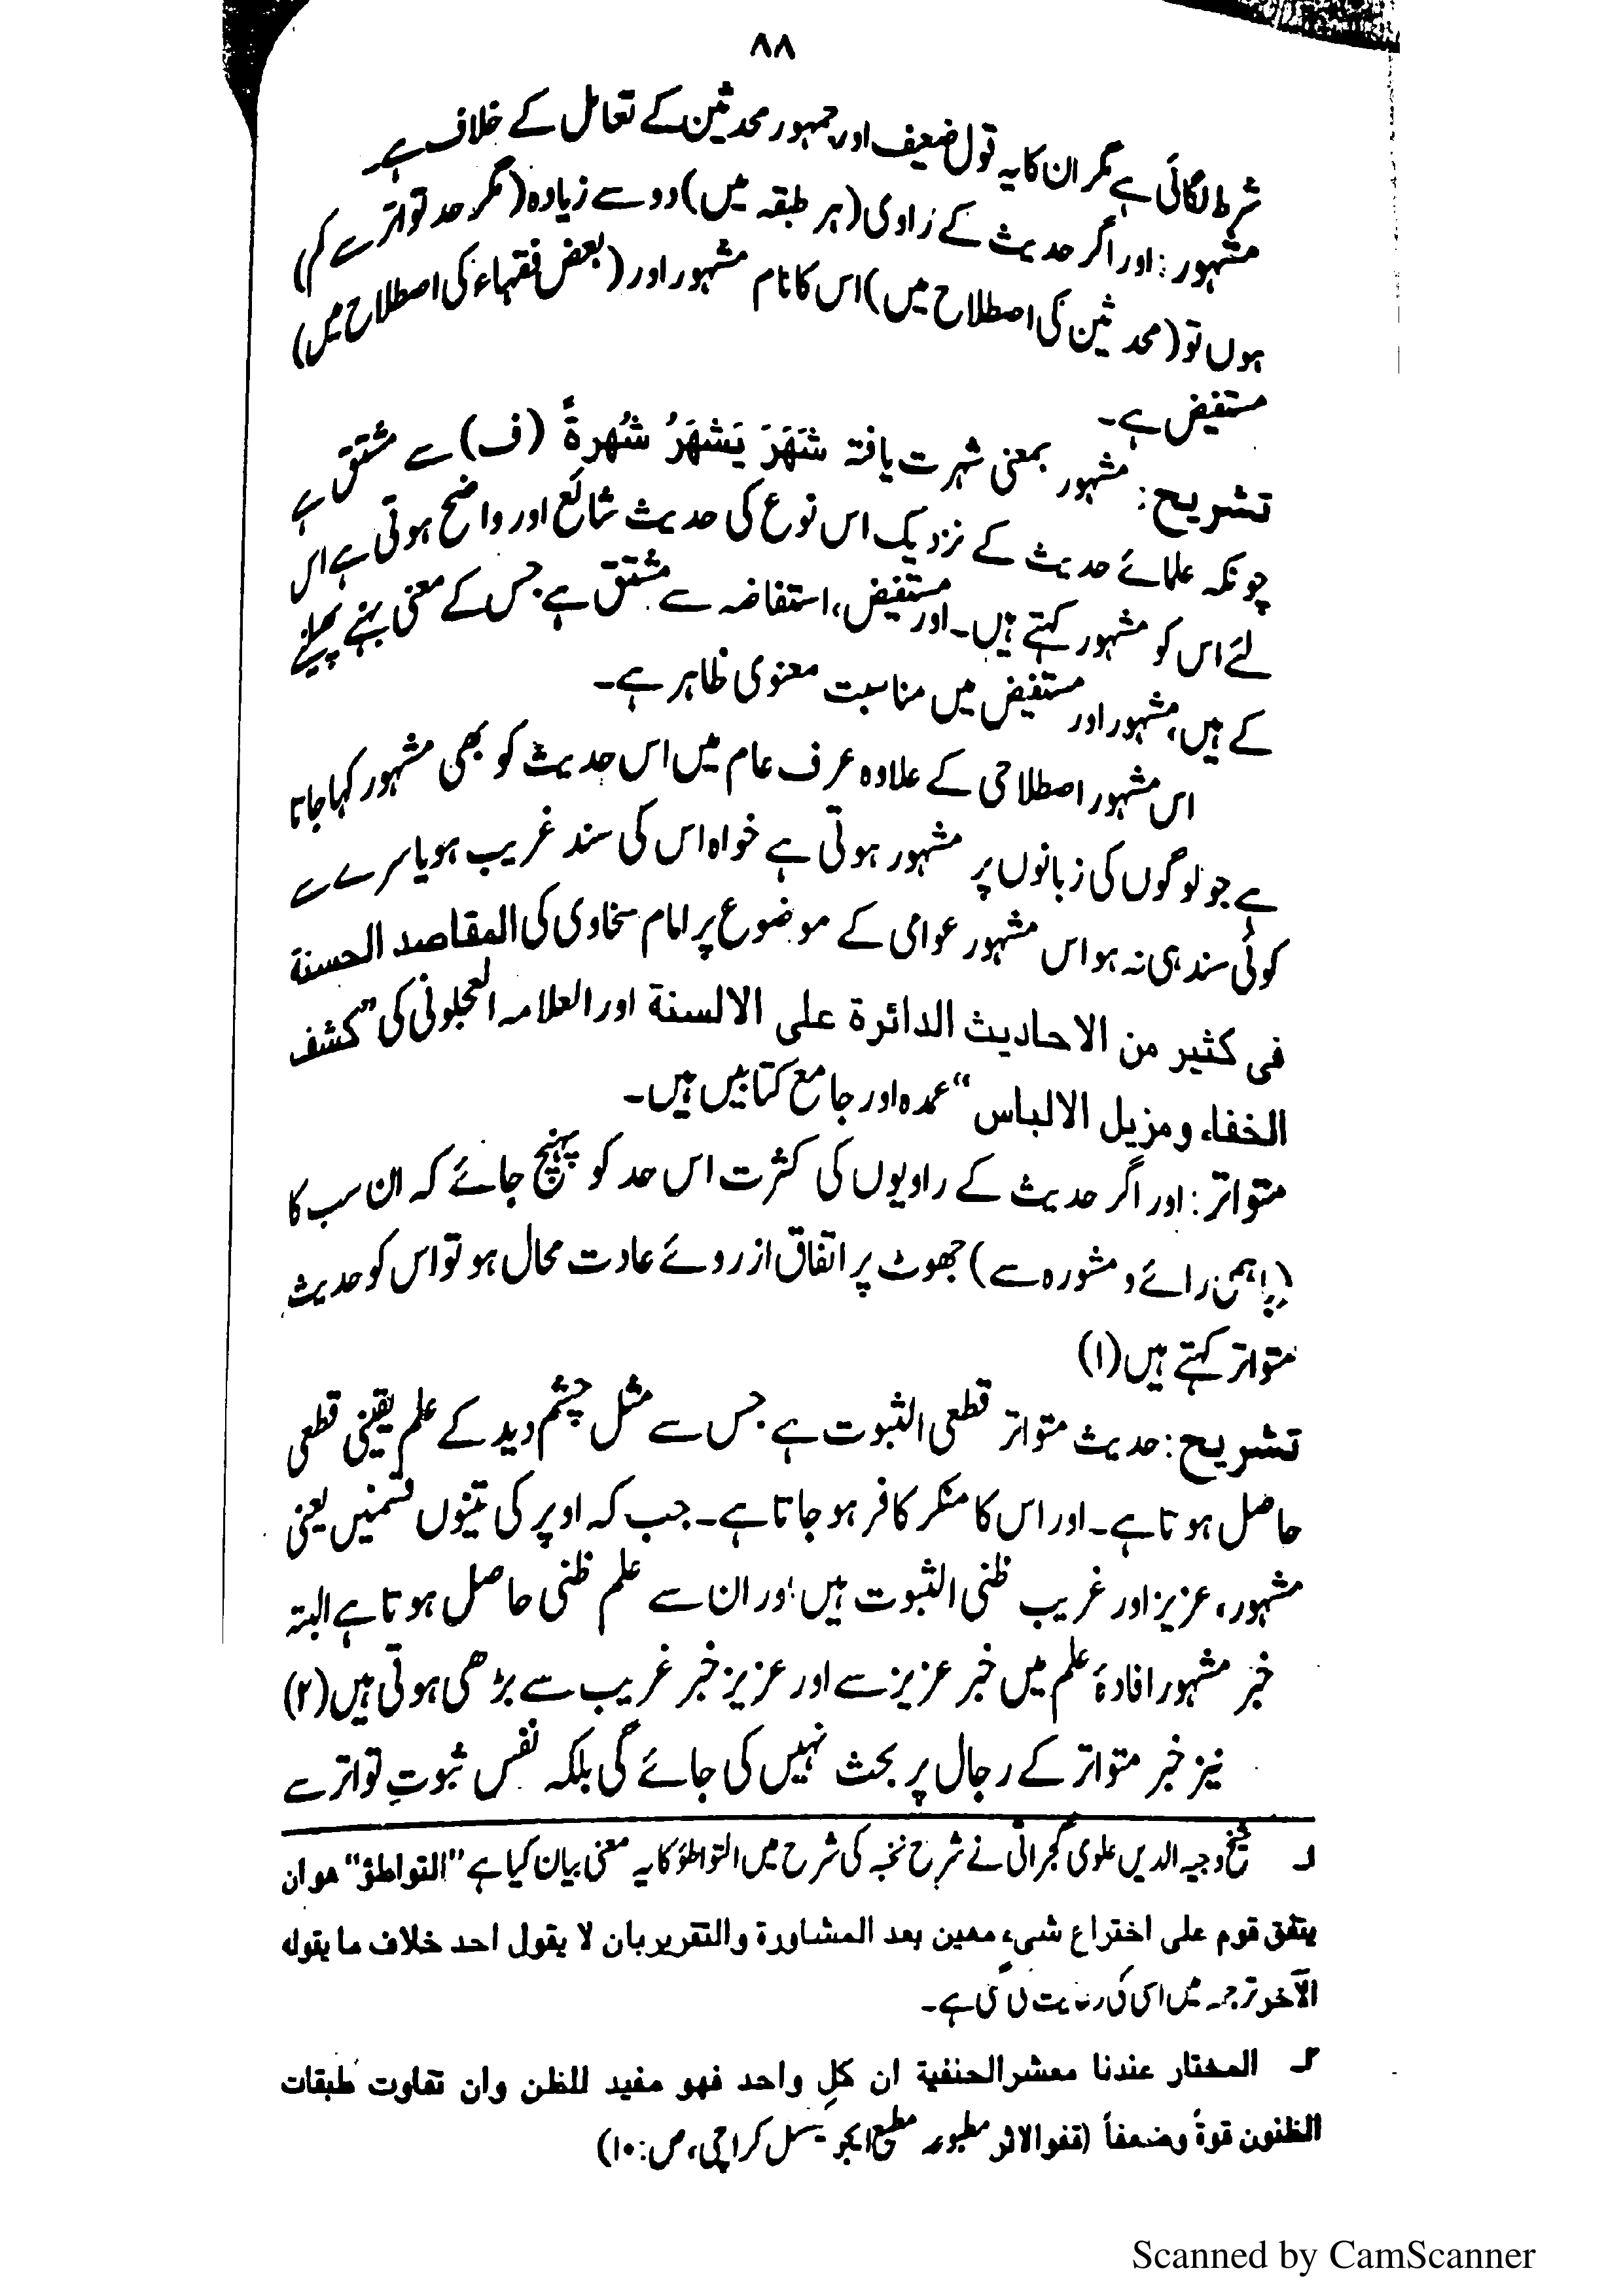 ۸۸
شرط لگائی ہے مگر ان کا یہ قول ضعیف اور جمہور محدثین کے تعامل کے خلاف ہے۔
مشہور: اور اگر حدیث کے راوی (ہر طبقہ میں) دو سے زیادہ (مگر حد تواتر سے کم)
ہوں تو (محدثین کی اصطلاح میں) اس کا نام مشہور اور (بعض فقہاء کی اصطلاح میں)
مستفیض ہے۔
تشریح: مشہور بمعنی شہرت یافتہ شَهَرَ يَشهَرُ شُهرةً (ف) سے مشتق ہے
چونکہ علمائے حدیث کے نزدیک اس نوع کی حدیث شائع اور واضح ہوتی ہے اس
لئے اس کو مشہور کہتے ہیں۔ اور مستفیض، استفاضہ سے مشتق ہے جس کے معنی بہنے پھیلنے
کے ہیں، مشہور اور مستفیض میں مناسبت معنوی ظاہر ہے۔
اس مشہور اصطلاحی کے علاوہ عرف عام میں اس حدیث کو بھی مشہور کہا جاتا
ہے جو لوگوں کی زبانوں پر مشہور ہوتی ہے خواہ اس کی سند غریب ہو یا سرے سے
کوئی سند ہی نہ ہو اس مشہور عوامی کے موضوع پر امام سخاوی کی المقاصد الحسنة
فی کثیر من الاحادیث الدائرة علی الالسنة اور العلامہ العجلونی کی "کشف
الخفاء ومزیل الالباس" عمدہ اور جامع کتابیں ہیں۔
متواتر: اور اگر حدیث کے راویوں کی کثرت اس حد کو پہنچ جائے کہ ان سب کا
رائے و مشورہ سے) جھوٹ پر اتفاق از روئے عادت محال ہو تو اس کو حدیث
متواتر کہتے ہیں (۱)
تشریح: حدیث متواتر قطعی الثبوت ہے جس سے مثل چشم دید کے علم یقینی قطعی
حاصل ہوتا ہے۔ اور اس کا منکر کافر ہو جاتا ہے۔ جب کہ اوپر کی تینوں قسمیں یعنی
مشہور، عزیز اور غریب ظنی الثبوت ہیں اور ان سے علم ظنی حاصل ہوتا ہے البتہ
خبر مشہور افادۂ علم میں خبر عزیز سے اور عزیز خبر غریب سے بڑھی ہوتی ہیں (۲)
نیز خبر متواتر کے رجال پر بحث نہیں کی جائے گی بلکہ نفس ثبوتِ تواتر سے
۱۔ شیخ وجیہ الدین علوی گجراتی نے شرح نخبہ کی شرح میں التواطؤ کا یہ معنی بیان کیا ہے "التواطؤ" هو ان
یتفق قوم علی اختراع شیء معین بعد المشاورة والتقریر بان لا یقول احد خلاف ما یقوله
الآخر ترجمہ میں اسی کی ہے۔
۲۔ المختار عندنا معشر الحنفیة ان کل واحد فهو مفید للظن وان تفاوت طبقات
الظنون قوةً وضعفاً (قفو الاثر مطبوعہ مطبع کراچی، ص: ۱۰)
Scanned by CamScanner